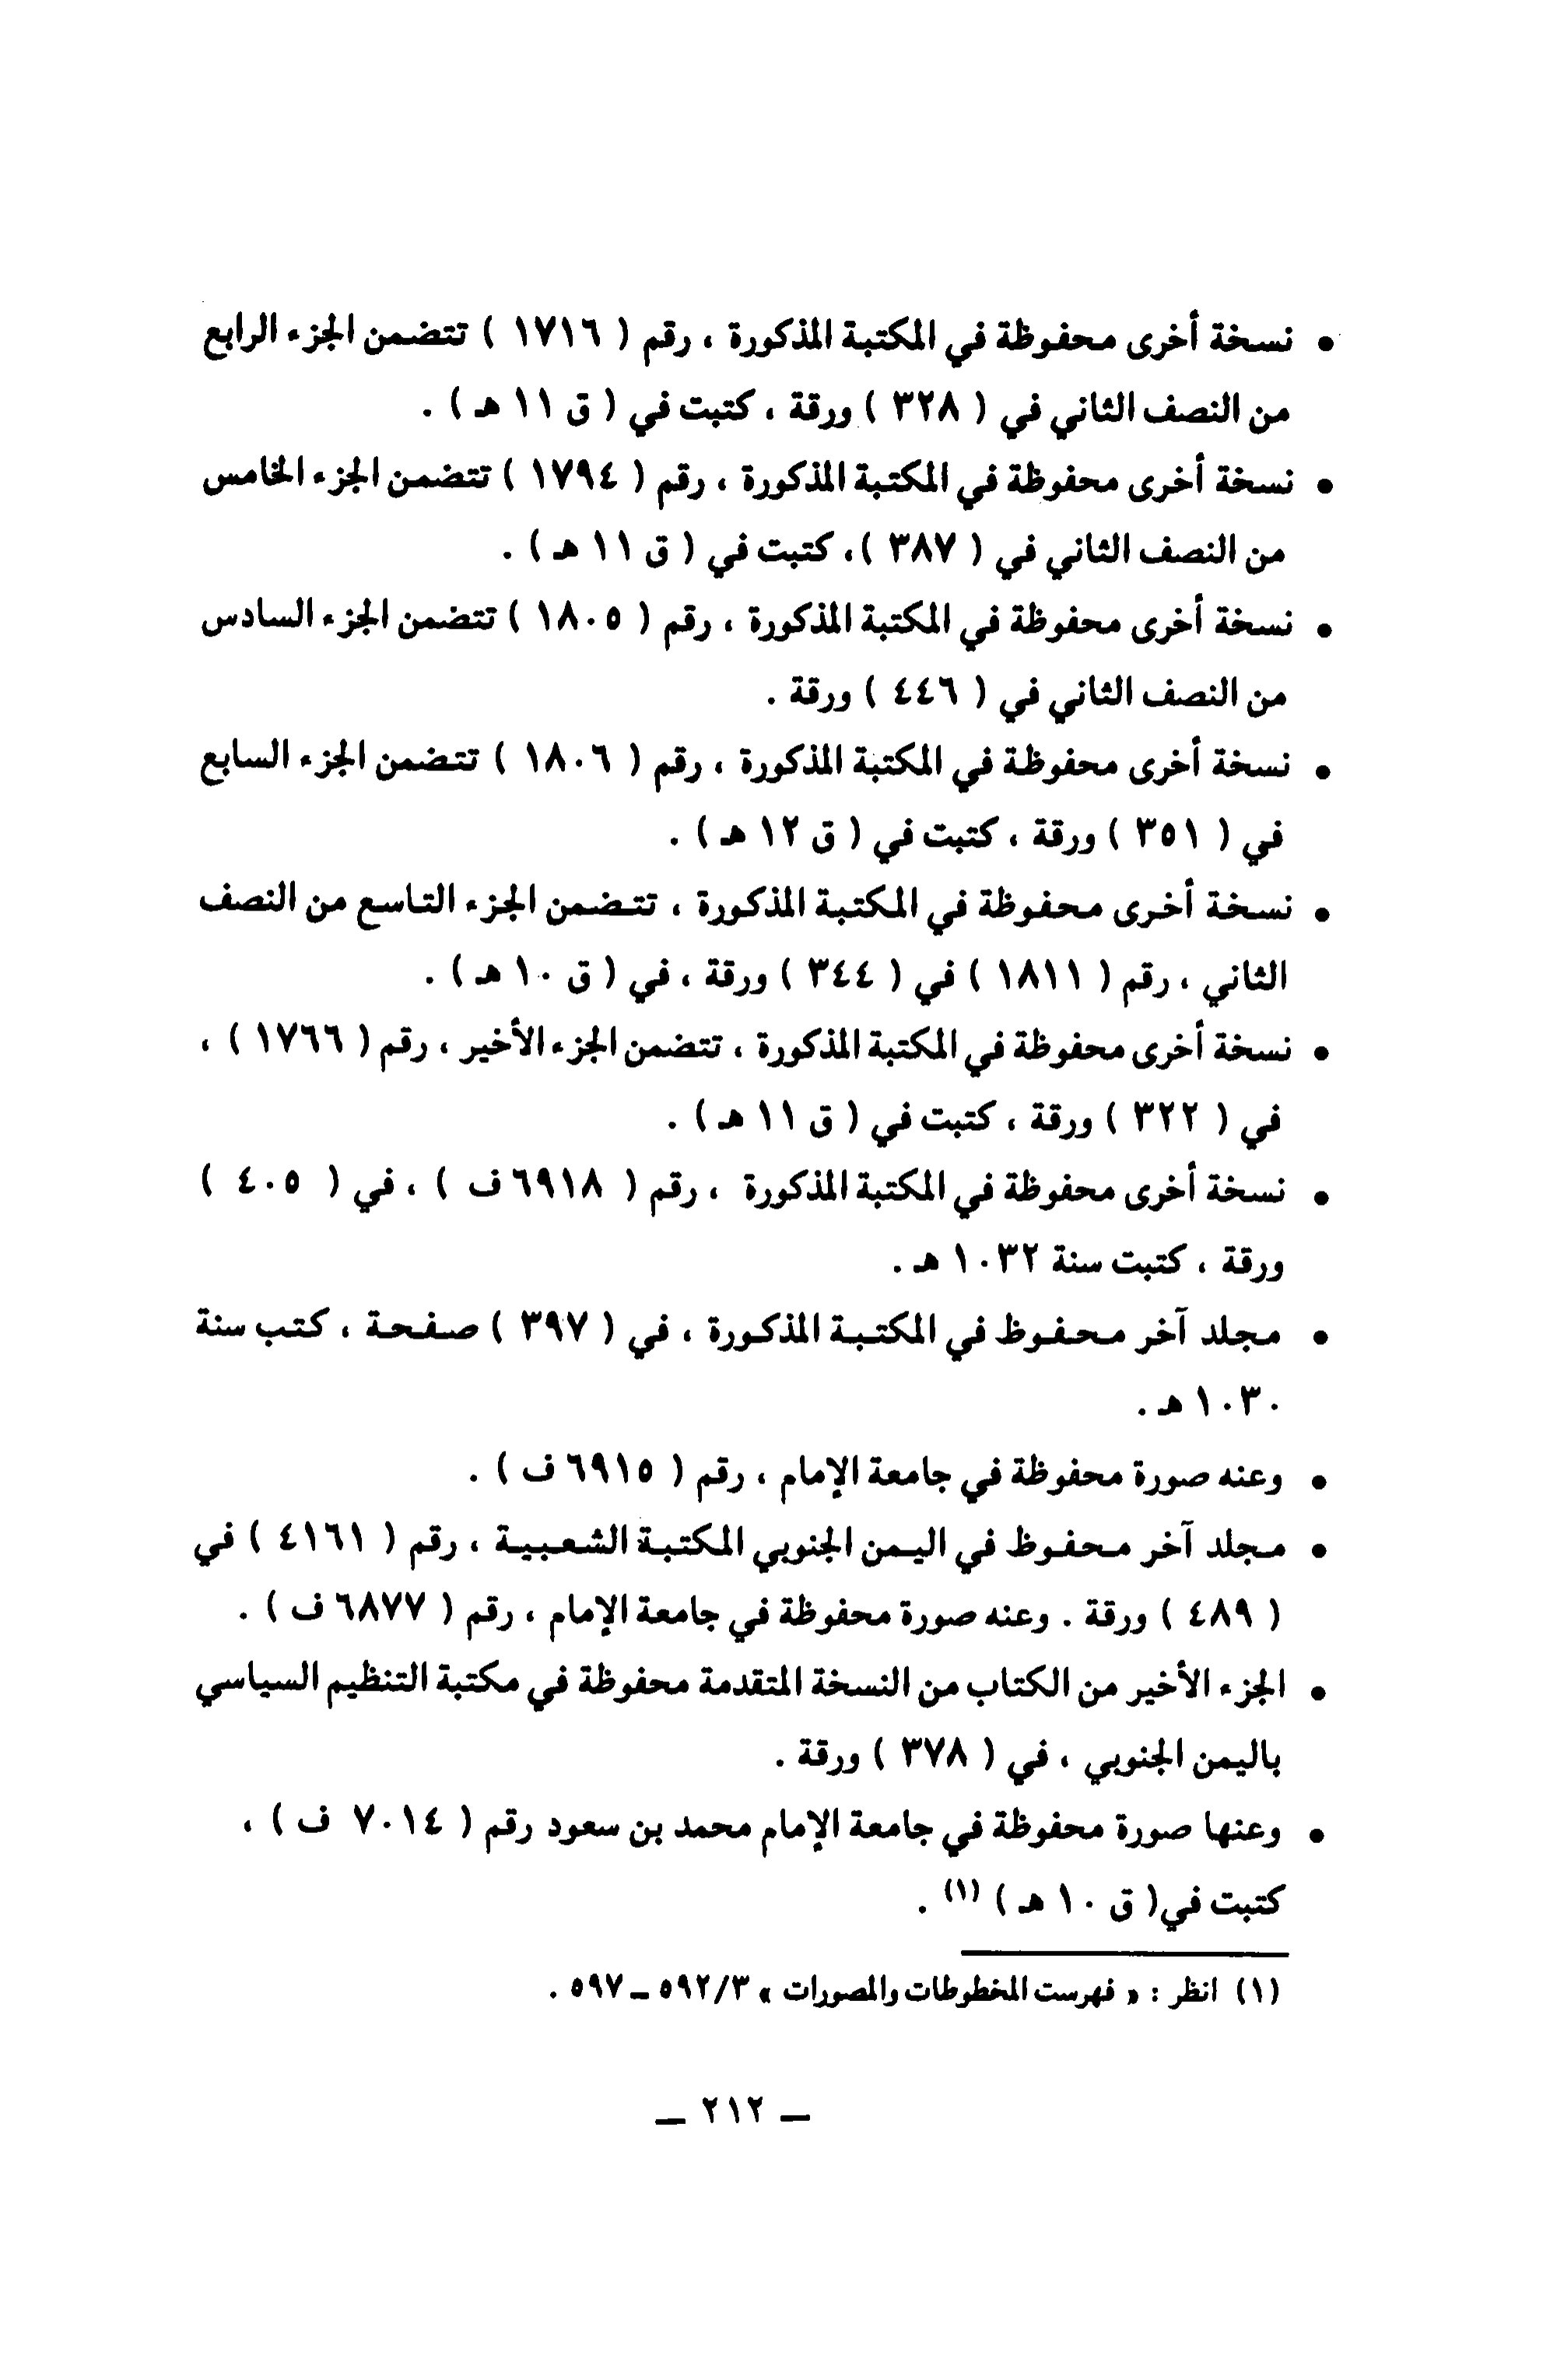 • نسخة أخرى محفوظة في المكتبة المذكورة ، رقم ( ١٧١٦ ) تتضمن الجزء الرابع
من النصف الثاني في ( ٣٢٨ ) ورقة ، كتبت في ( ق ١١ هـ ) .
• نسخة أخرى محفوظة في المكتبة المذكورة ، رقم ( ١٧٩٤ ) تتضمن الجزء الخامس
من النصف الثاني في ( ٣٨٧ )، كتبت في ( ق ١١ هـ ) .
• نسخة أخرى محفوظة في المكتبة المذكورة ، رقم ( ١٨٠٥ ) تتضمن الجزء السادس
من النصف الثاني في ( ٤٤٦ ) ورقة .
• نسخة أخرى محفوظة في المكتبة المذكورة ، رقم ( ١٨٠٦ ) تتضمن الجزء السابع
في ( ٣٥١ ) ورقة ، كتبت في ( ق ١٢ هـ ) .
• نسخة أخرى محفوظة في المكتبة المذكورة ، تتضمن الجزء التاسع من النصف
الثاني ، رقم ( ١٨١١ ) في ( ٣٤٤ ) ورقة ، في ( ق ١٠ هـ ) .
• نسخة أخرى محفوظة في المكتبة المذكورة ، تتضمن الجزء الأخير ، رقم ( ١٧٦٦ ) ،
في ( ٣٢٢ ) ورقة ، كتبت في ( ق ١١ هـ ) .
• نسخة أخرى محفوظة في المكتبة المذكورة ، رقم ( ٦٩١٨ ف ) ، في ( ٤٠٥ )
ورقة ، كتبت سنة ١٠٣٢ هـ .
• مجلد آخر محفوظ في المكتبة المذكورة ، في ( ٣٩٧ ) صفحة ، كتب سنة
١٠٣٠ هـ .
• وعنه صورة محفوظة في جامعة الإمام ، رقم ( ٦٩١٥ ف ) .
• مجلد آخر محفوظ في اليمن الجنوبي المكتبة الشعبية ، رقم ( ٤١٦١ ) في
( ٤٨٩ ) ورقة . وعنه صورة محفوظة في جامعة الإمام ، رقم ( ٦٨٧٧ ف ) .
• الجزء الأخير من الكتاب من النسخة المتقدمة محفوظة في مكتبة التنظيم السياسي
باليمن الجنوبي ، في ( ٣٧٨ ) ورقة .
• وعنها صورة محفوظة في جامعة الإمام محمد بن سعود رقم ( ٧٠١٤ ف ) ،
كتبت في( ق ١٠ هـ ) (١) .
(١) انظر : « فهرست المخطوطات والمصورات » ٥٩٢/٣ ــ ٥٩٧ .
ــ ٢١٢ ــ